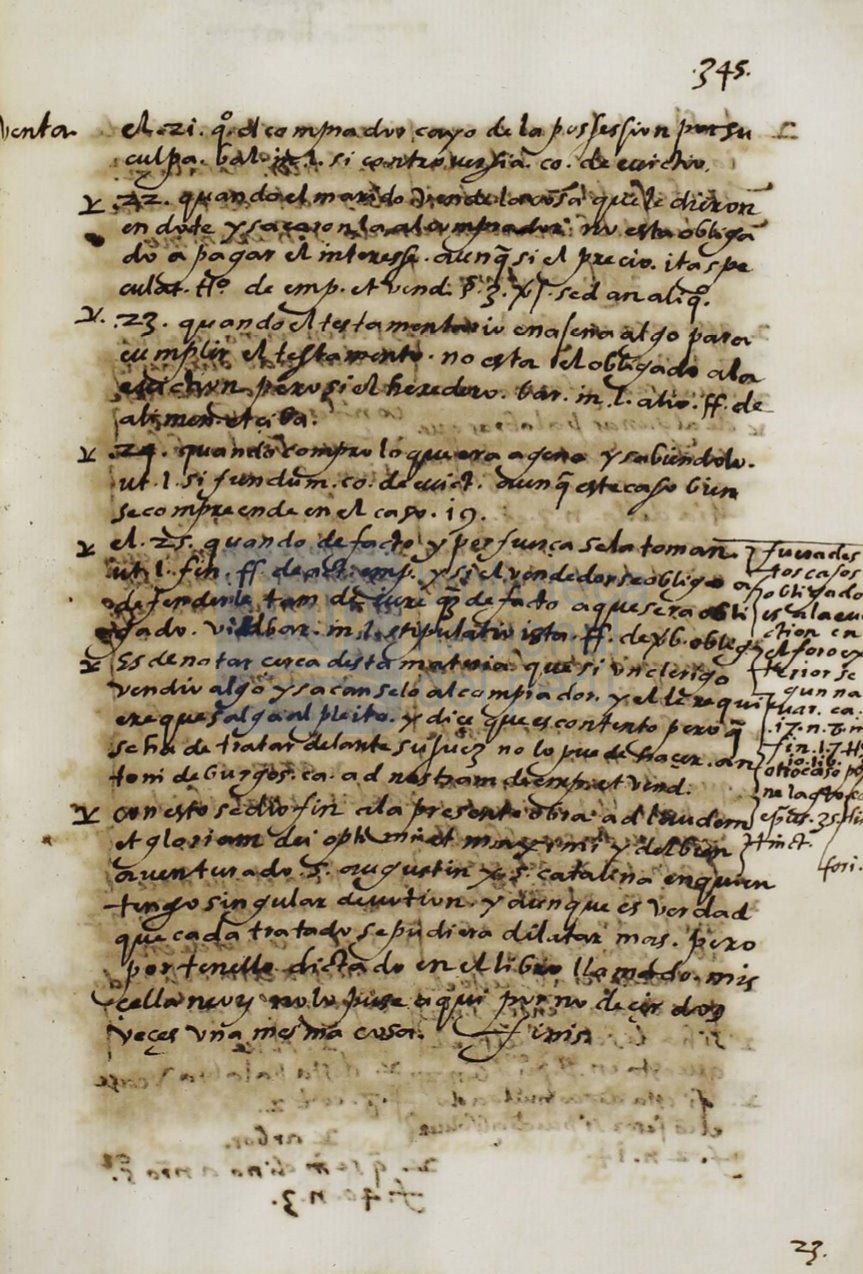 .345.
venta
el .21. qº. el comprador cayo de la possession por su
culpa. bal. in. l. si controversiã. co. de evictio.
.22. quando el marido vende la cosa que le dieron
en dote y sacaronla al comprador no esta obligã
do a pagar el interesse. aunq̃ si el precio. ita spe
culat. ttº. de emp. et vend. §. 3. sed an aliqº.
.23. quando el testamentario enagena algo para
cumplir el testamento. no esta el obligado ala
eviction pero si el heredero. bar. in. l. alio. ff. de
alimen. et ciba.
.24. quando compro lo que era ageno y sabiendolo.
ut. l. si fundum. co. de evict. aunq̃ este caso bien
se compreende en el caso. 19.
el. 25. quando de facto y por fuerça se la toman.
ut. l. fin. ff. de act. emp. y si el vendedor se obligo a
defenderle tam de iure q̃ de facto aqui sera obli
gado. bar. in. l. stipulatio ista. ff. de vb. oblig.
Es de notar cerca desta materia que si un clerigo
vendio algo y sacanselo al comprador. y el le requi
ere que salga al pleito. y dice que es contento pero q̃
se ha de tratar delante su juez no lo puede hacer. an
toni de burgos. ca. ad nostram de empt. et vend.
con esto se dio fin ala presente obra ad laudem
et gloriam dei optimi et maximi y del bien
aventurado. s. augustin y. s. catalina en quien
tengo singular devotion. y aunque es verdad
que cada tratado se pudiera dilatar mas. pero
por tenello dictado en el libro llamado. mis
cellaneos no lo puse aqui por no decir dos
veçes una mesma cosa. finis
fuera des
tos casos
obligado
es ala evi
ction en
el foro ex
terior se
gun na
var. ca.
.17. n.
fin. l. 7. tt
10. lib.
otro caso po
ne la
fori.
23.